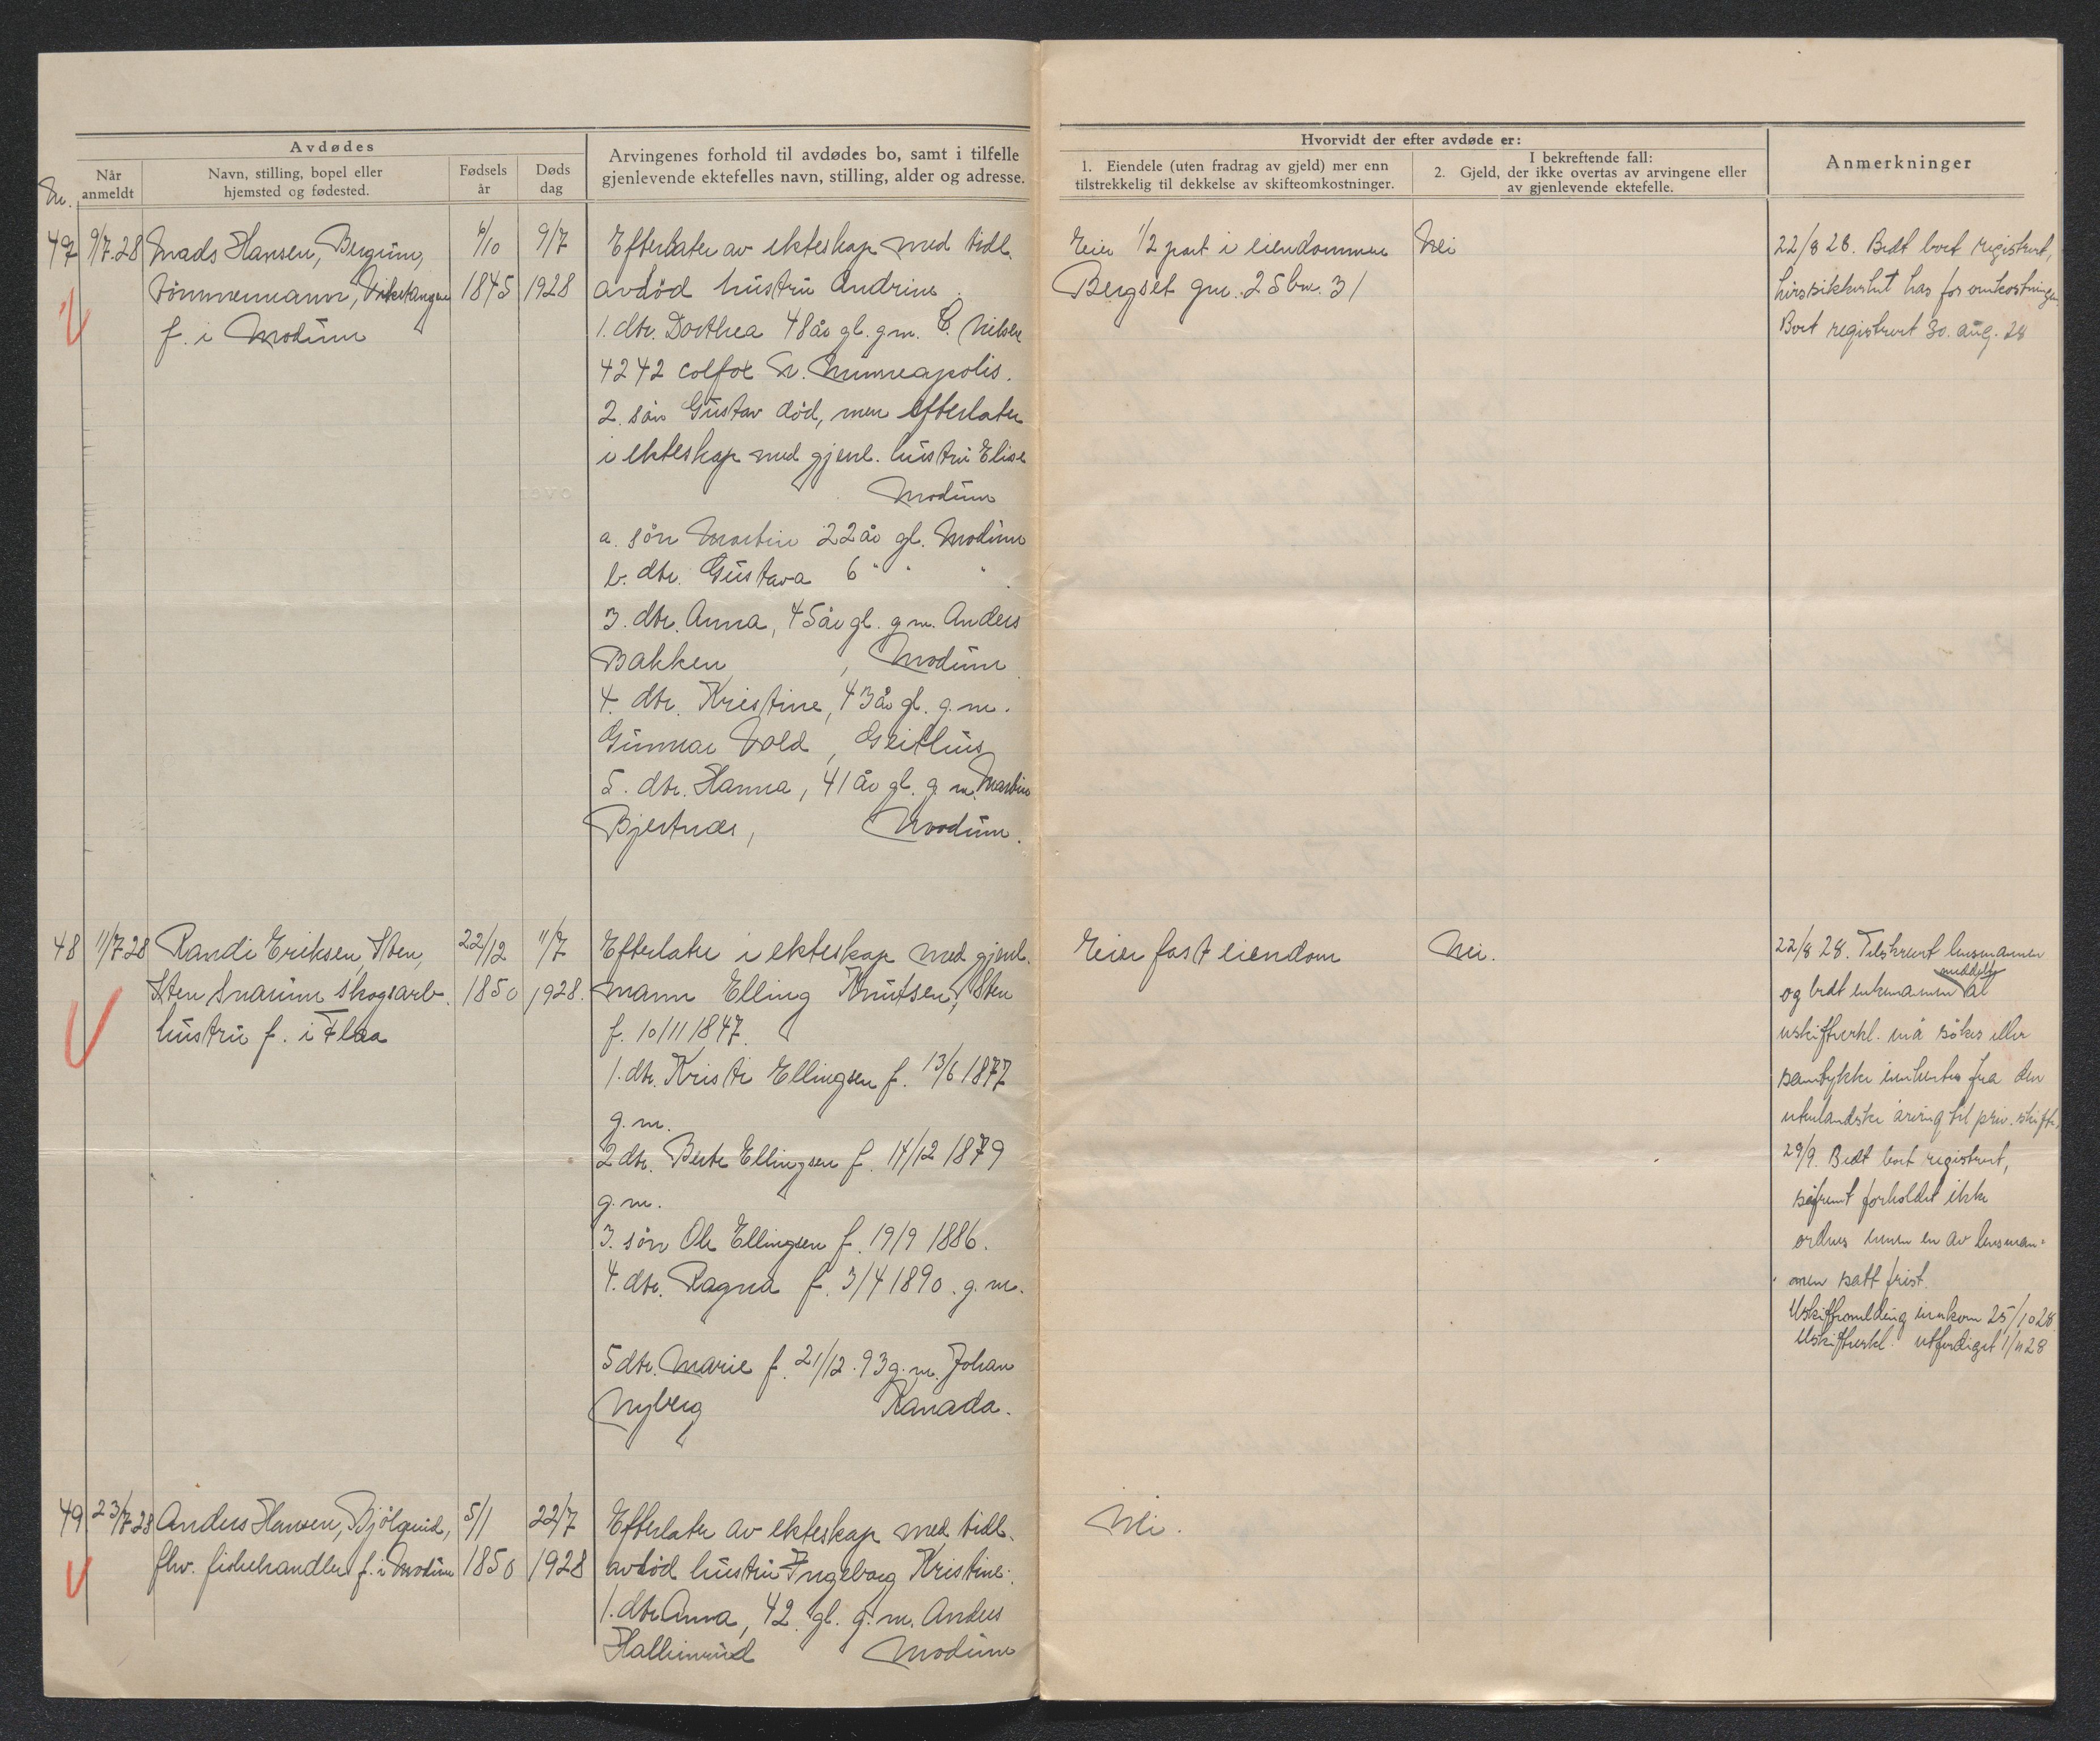 Avdødes
Nr.
Når anmeldt
Navn, stilling, bopel eller hjemsted og fødested.
Fødsels år
Døds dag
Arvingenes forhold til avdødes bo, samt i tilfelle
gjenlevende ektefelles navn, stilling, alder og adresse.
Hvorvidt der efter avdøde er:
1. Eiendele (uten fradrag av gjeld) mer enn
tilstrekkelig til dekkelse av skifteomkostninger.
I bekreftende fall:
2. Gjeld, der ikke overtas av arvingene eller
av gjenlevende ektefelle.
Anmerkninger
47 9/7.28 Mads Hansen, Bergum,
tømmermann, Vikersangen
f. i Modum
/10
1845
9/7
1928
Efterlater av ekteskap med tidl.
avdød hustru Andrine.
1. dtr. Dorthea 48 år gl. g.m. C. Nilsen
4242 Colfox N. Minneapolis.
2. søn Gustav død, men efterlater
i ekteskap med gjenl. hustru Elise
Modum
a. søn Martin 22 år gl. Modum
b. dtr. Gustava 6 " " "
3. dtr. Anna, 45 år gl. g.m. Anders
Bakken, Modum
4. dtr. Kristine, 43 år gl. g.m.
Gunnar Vold, Geithus
5. dtr. Hanna, 41 år gl. g.m. Martin
Bjertnæs, Modum.
Eier 1/2 part i eiendommen
Bergset gnr. 25 bnr. 31
Nei
22/8 28. Bedt boet registrert,
hvis sikkerhet has for omkostningen
Boet registrert 30. aug. 28
48 11/7 28 Randi Eriksen, Sten,
Sten Snarum skogsarb.
hustru f. i Flaa
22/12
1850
11/7
1928.
Efterlater i ekteskap med gjenl.
mann Elling Knutsen, Sten
f. 10/11 1847.
1. dtr. Kristi Ellingsen f. 13/6 1877
g.m.
2 dtr. Berte Ellingsen f. 14/12 1879
g.m.
3. søn Ole Ellingsen f. 19/9 1886.
4. dtr. Ragna f. 3/4 1890. g.m.
5 dtr. Marie f. 21/12. 93 g.m. Johan
Nyberg Kanada.
Eier fast eiendom
Nei.
22/8 28. Tilskrevet lensmannen
og bedt enkemannen meddelt at
uskifteerkl. må søkes eller
samtykke innhentes fra den
utenlandske arving til priv. skifte.
29/9. Bedt boet registrert,
såfremt forholdet ikke
ordnes innen en av lensman=
nen satt frist.
Uskiftemelding innkom 25/10 28
Uskifteerkl. utferdiget 1/11 28
49 23/7 28 Anders Hansen, Bjølgerud,
fhv. fiskehandler f. i Modum
5/1
1850
22/7
1928
Efterlater av ekteskap med tidl.
avdød hustru Ingeborg Kristine:
1. dtr Anna, 42 gl. g.m. Anders
Hallinrud Modum
Nei.